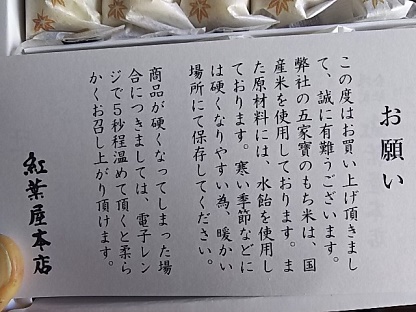 お願い
この度はお買い上げ頂きまし
て、誠に有難うございます。
弊社の五家寶のもち米は、国
産米を使用しております。ま
た原材料には、水飴を使用し
ております。寒い季節などに
は硬くなりやすい為、暖かい
場所にて保存してください。
商品が硬くなってしまった場
合につきましては、電子レン
ジで5秒程温めて頂くと柔ら
かくお召し上がり頂けます。
紅葉屋本店